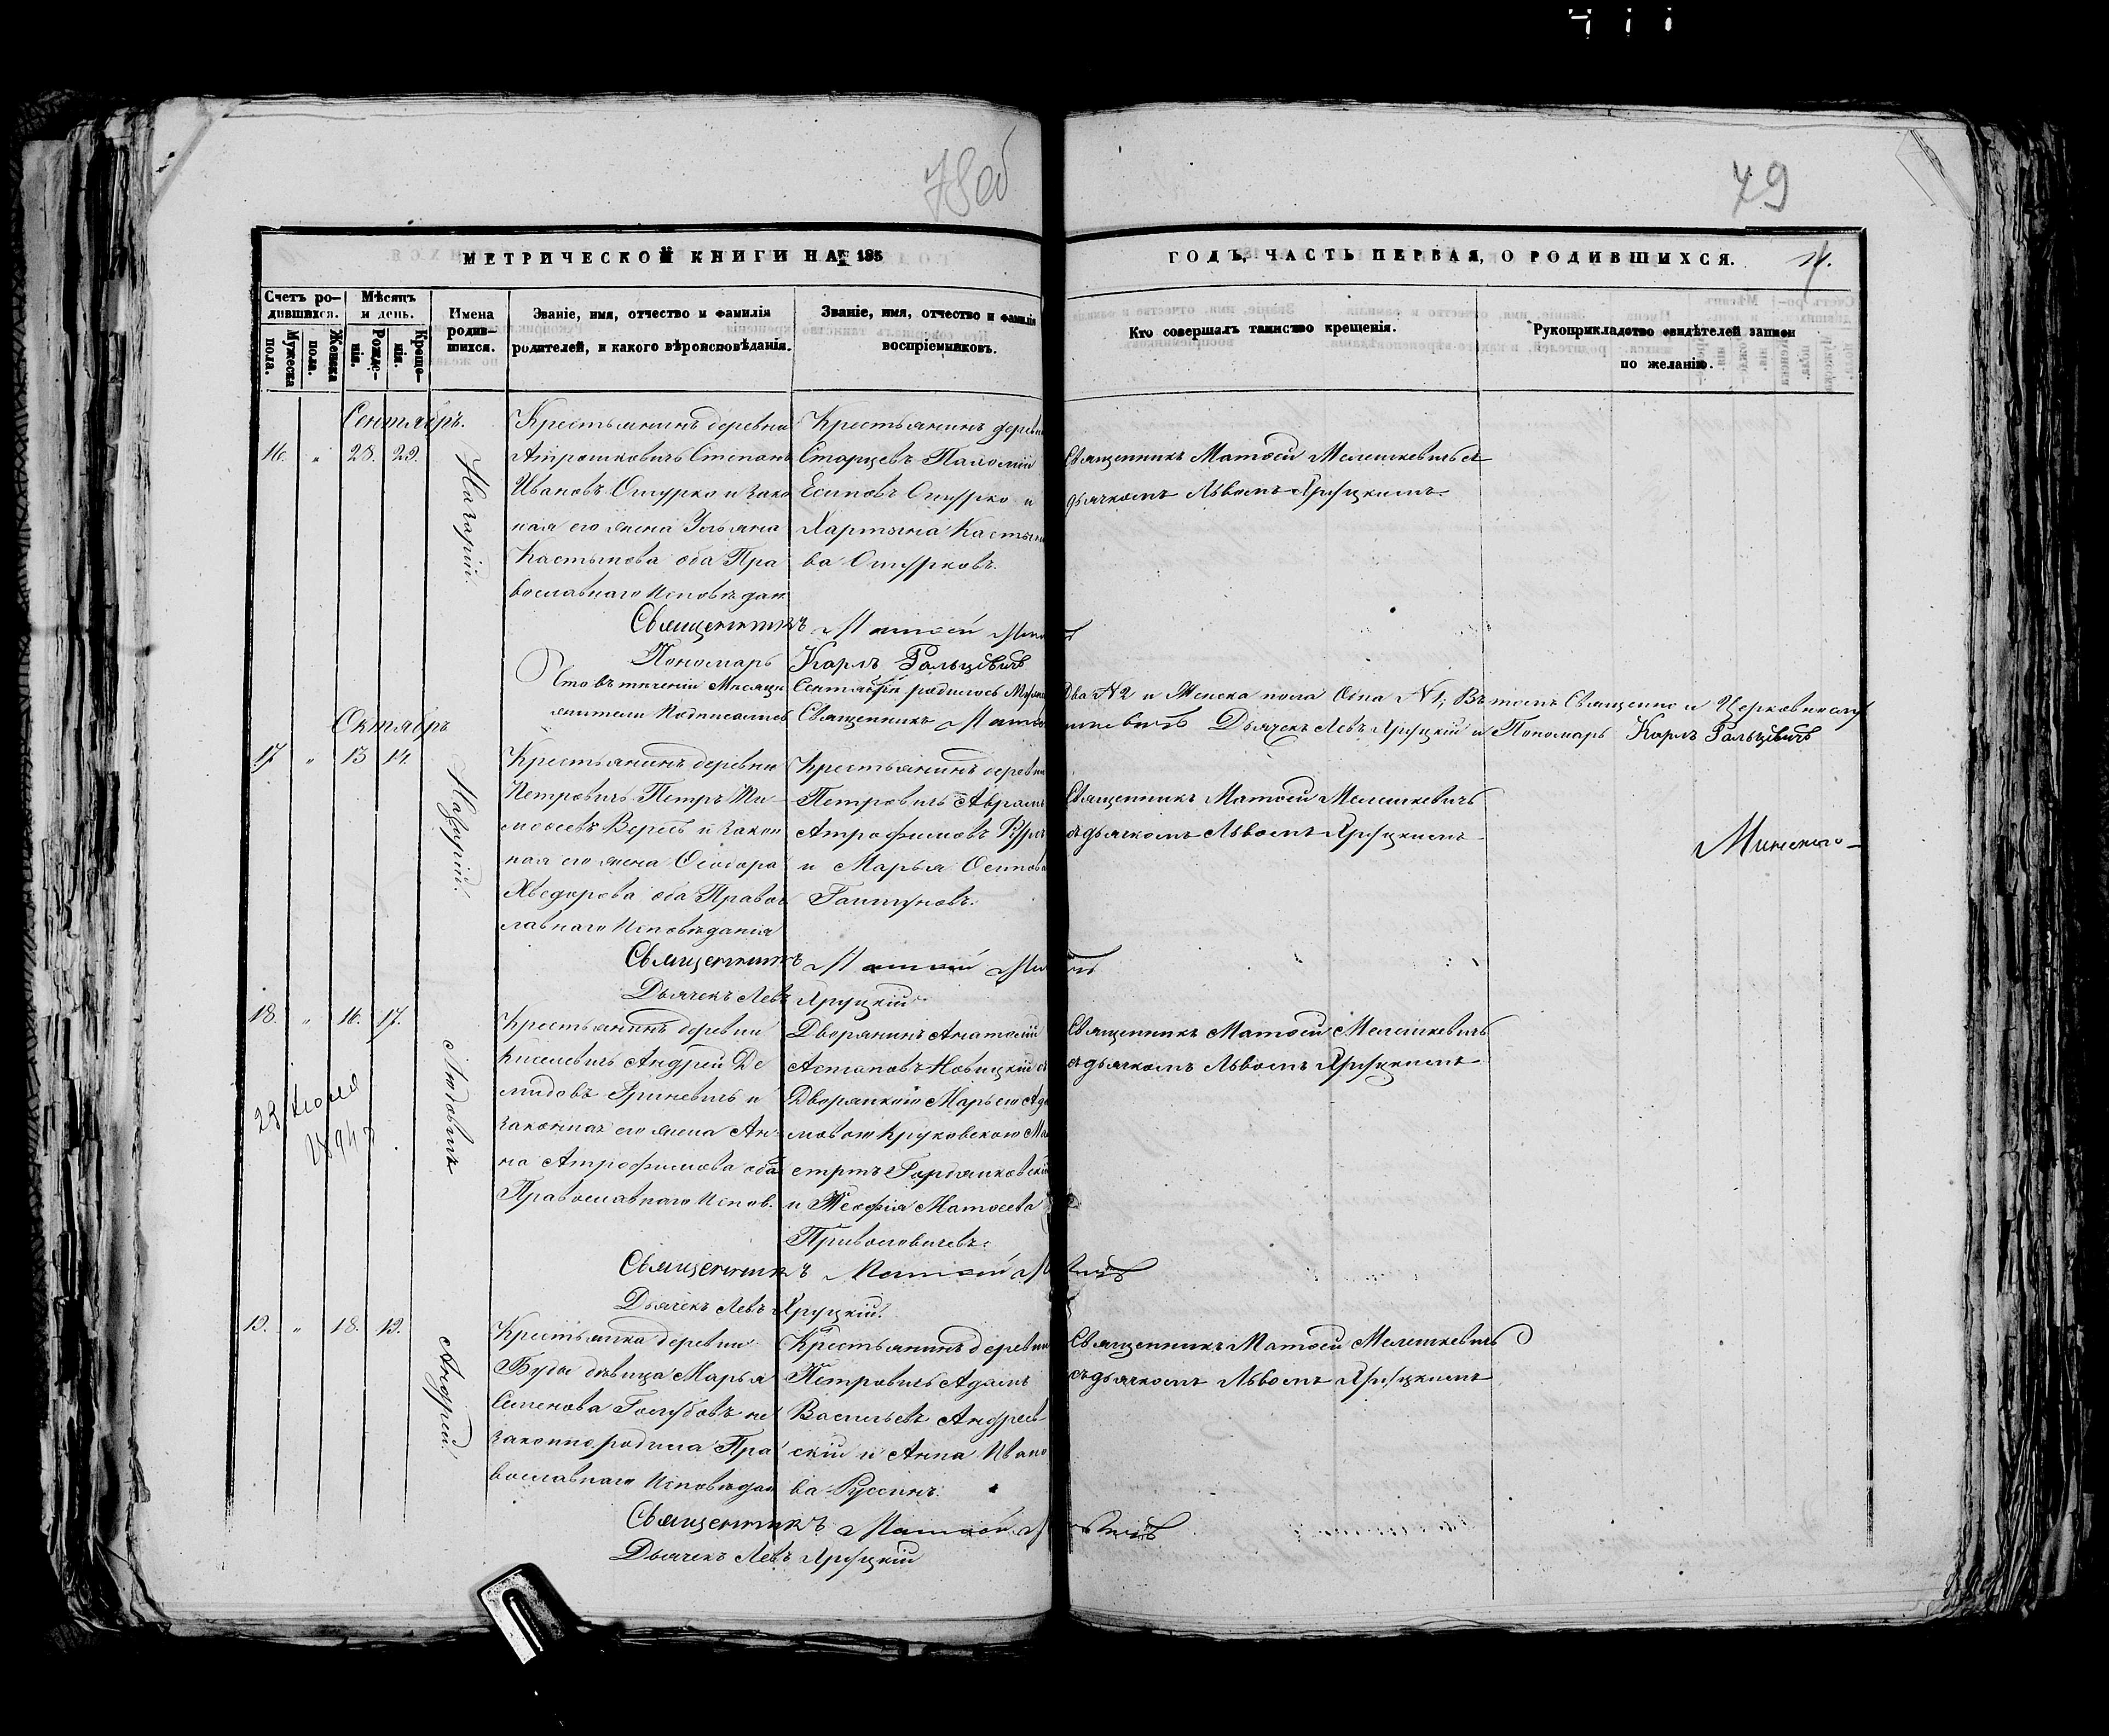 78 об
79
МЕТРИЧЕСКОЙ КНИГИ НА 185
ГОДЪ, ЧАСТЬ ПЕРВАЯ, О РОДИВШИХСЯ.
11.
Счетъ родившихся.
Мужеска пола.
Женска пола.
Мѣсяцъ и день.
Рожденія.
Крещенія.
Имена родившихся.
Званіе, имя, отчество и фамилія родителей, и какого вѣроисповѣданія.
Званіе, имя, отчество и фамилія воспріемниковъ.
Кто совершалъ таинство крещенія.
Рукоприкладство свидѣтелей записи по желанію.
Сентябрь.
16. " 28. 29.
Крестьянинъ деревни
Степанъ
Ивановъ Ошурко и зако
ная его жена Ульяна
Кастынова оба Пра
вославнаго Исповѣдан
Крестьянинъ деревн
Старцевъ
Есиповъ Ошурко и
ва Ошурковъ.
Священникъ Матѳей Мелешкевичъ съ
дьячкомъ Львомъ Яруцкимъ
Священникъ Матѳей
Пономарь Карлъ Гальцевичъ
Что въ теченіи Мѣсяца Сентября родилось
два N 2 и Женска пола Одна N 1, Въ томъ Священно и Церковнослу
жители Подписались Священникъ
Дьячекъ Левъ Яруцкій и Пономарь Карлъ Гальцевичъ
Октябрь
17 " 13 14.
Назарій.
Крестьянинъ деревни
Петровичъ Петръ Ти
моѳеевъ Вересъ и закон
ная его жена Ѳеодора
Хведорова оба Правос
лавнаго Исповѣданія
Крестьянинъ деревни
Петровичъ Аврамъ
Атрофимовъ
и Марья Осипова
Священникъ Матѳей Мелешкевичъ
съ дьячкомъ Львомъ Яруцкимъ
Минскаго
Священникъ Матѳей
Дьячекъ Левъ Яруцкій
18. " 16. 17.
23 Июля
Людовикъ
Крестьянинъ деревни
Киселевичъ Андрей Де
мидовъ Гриневичъ и
законная его жена Ан
на Атрофимова оба
Православнаго Испов.
Дворянинъ Анатолій
Астаповъ Новицкій съ
Дворянкою Марьею Ада
мовою Круковскою
и Теофія Матѳеева
Священникъ Матѳей Мелешкевичъ
съ дьячкомъ Львомъ Яруцкимъ
Священникъ Матѳей
Дьячекъ Левъ Яруцкій.
19. " 18. 19.
Андрей.
Крестьянка деревни
Буды дѣвица Марья
Семенова Голубовъ не
законно родила Пра
вославнаго Исповѣдан
Крестьянинъ деревни
Петровичъ Адамъ
Васильевъ Андреев
скій и Анна Ивано
ва Руссинъ.
Священникъ Матѳей Мелешкевичъ
съ дьячкомъ Львомъ Яруцкимъ
Священникъ Матѳей
Дьячекъ Левъ Яруцкій